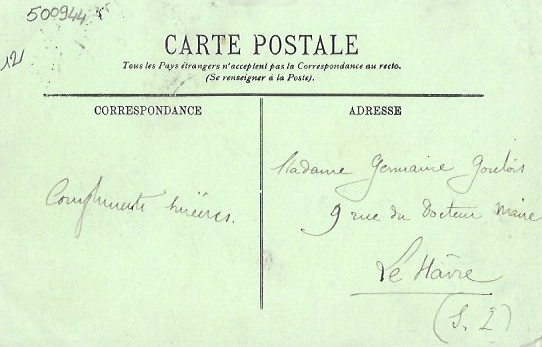 500944
12
CARTE POSTALE
Tous les Pays étrangers n'acceptent pas la Correspondance au recto.
(Se renseigner à la Poste).
CORRESPONDANCE
ADRESSE
Compliments sincères.
Madame Germaine
9 rue du Docteur Maire
Le Hâvre
(S. I)